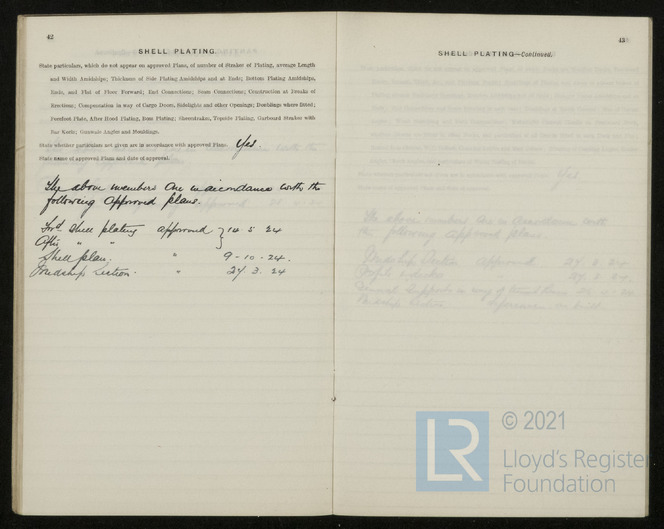 42
SHELL PLATING.
State particulars, which do not appear on approved Plans, of number of Strakes of Plating, average Length
and Width Amidships; Thickness of Side Plating Amidships and at Ends; Bottom Plating Amidships,
Ends, and Flat of Floor Forward; End Connections; Seam Connections; Construction at Breaks of
Erections; Compensation in way of Cargo Doors, Sidelights and other Openings; Doublings where fitted;
Forefoot Plate, After Hood Plating, Boss Plating; Sheerstrakes, Topside Plating, Garboard Strakes with
Bar Keels; Gunwale Angles and Mouldings.
State whether particulars not given are in accordance with approved Plans. Yes.
State name of approved Plans and date of approval.
The above members are in accordance with the
following Approved plans.
Ford Shell plating approved } 14 5 24
After " "
Shell plan. " 9-10-24.
Midship Section. " 27 3. 24
43
SHELL PLATING—Continued.
LR
© 2021
Lloyd's Register
Foundation